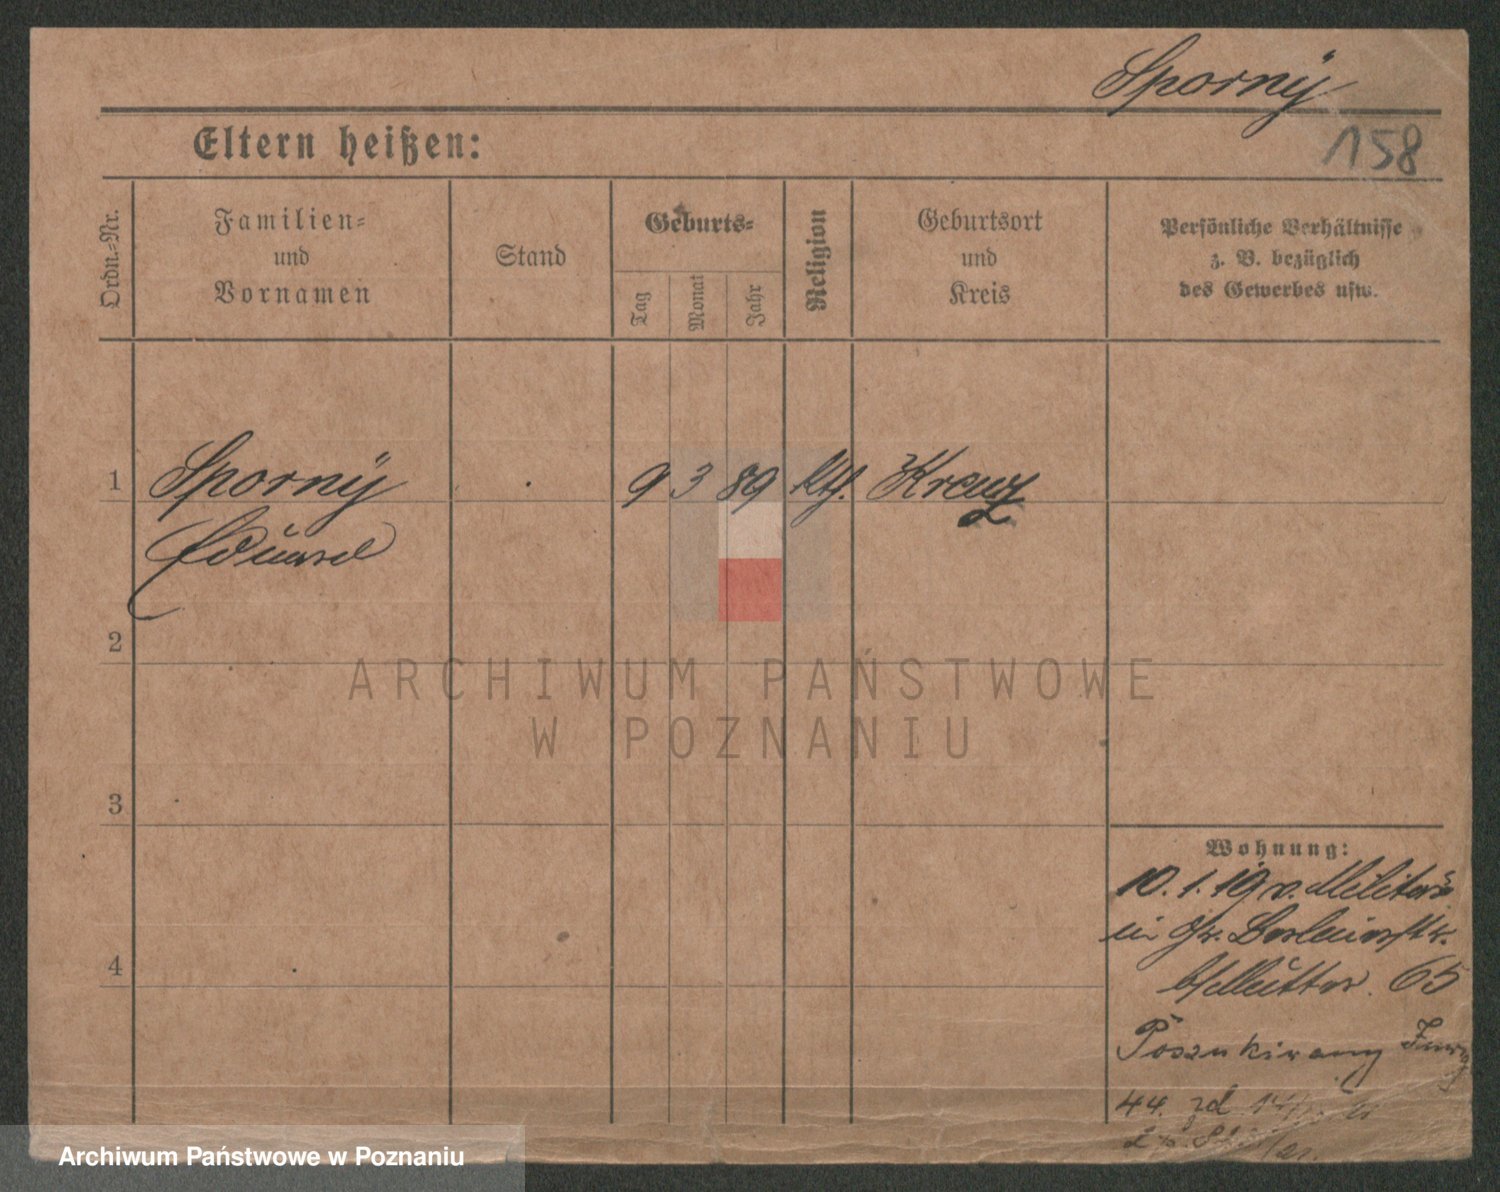 Sporny
158
Eltern heißen:
Ordn.-Nr.
Familien-
und
Vornamen
Stand
Geburts-
Tag
Monat
Jahr
Religion
Geburtsort
und
Kreis
Persönliche Verhältnisse
z. B. bezüglich
des Gewerbes usw.
1 Sporny 9 3 89 kth. Kreuz
Eduard
2
ARCHIWUM PAŃSTWOWE
W POZNANIU
3
4
Wohnung:
10.1.19 v. Militär
in Gr.
b/Mutter. 65
Poszukiwany
44. zd
Archiwum Państwowe w Poznaniu